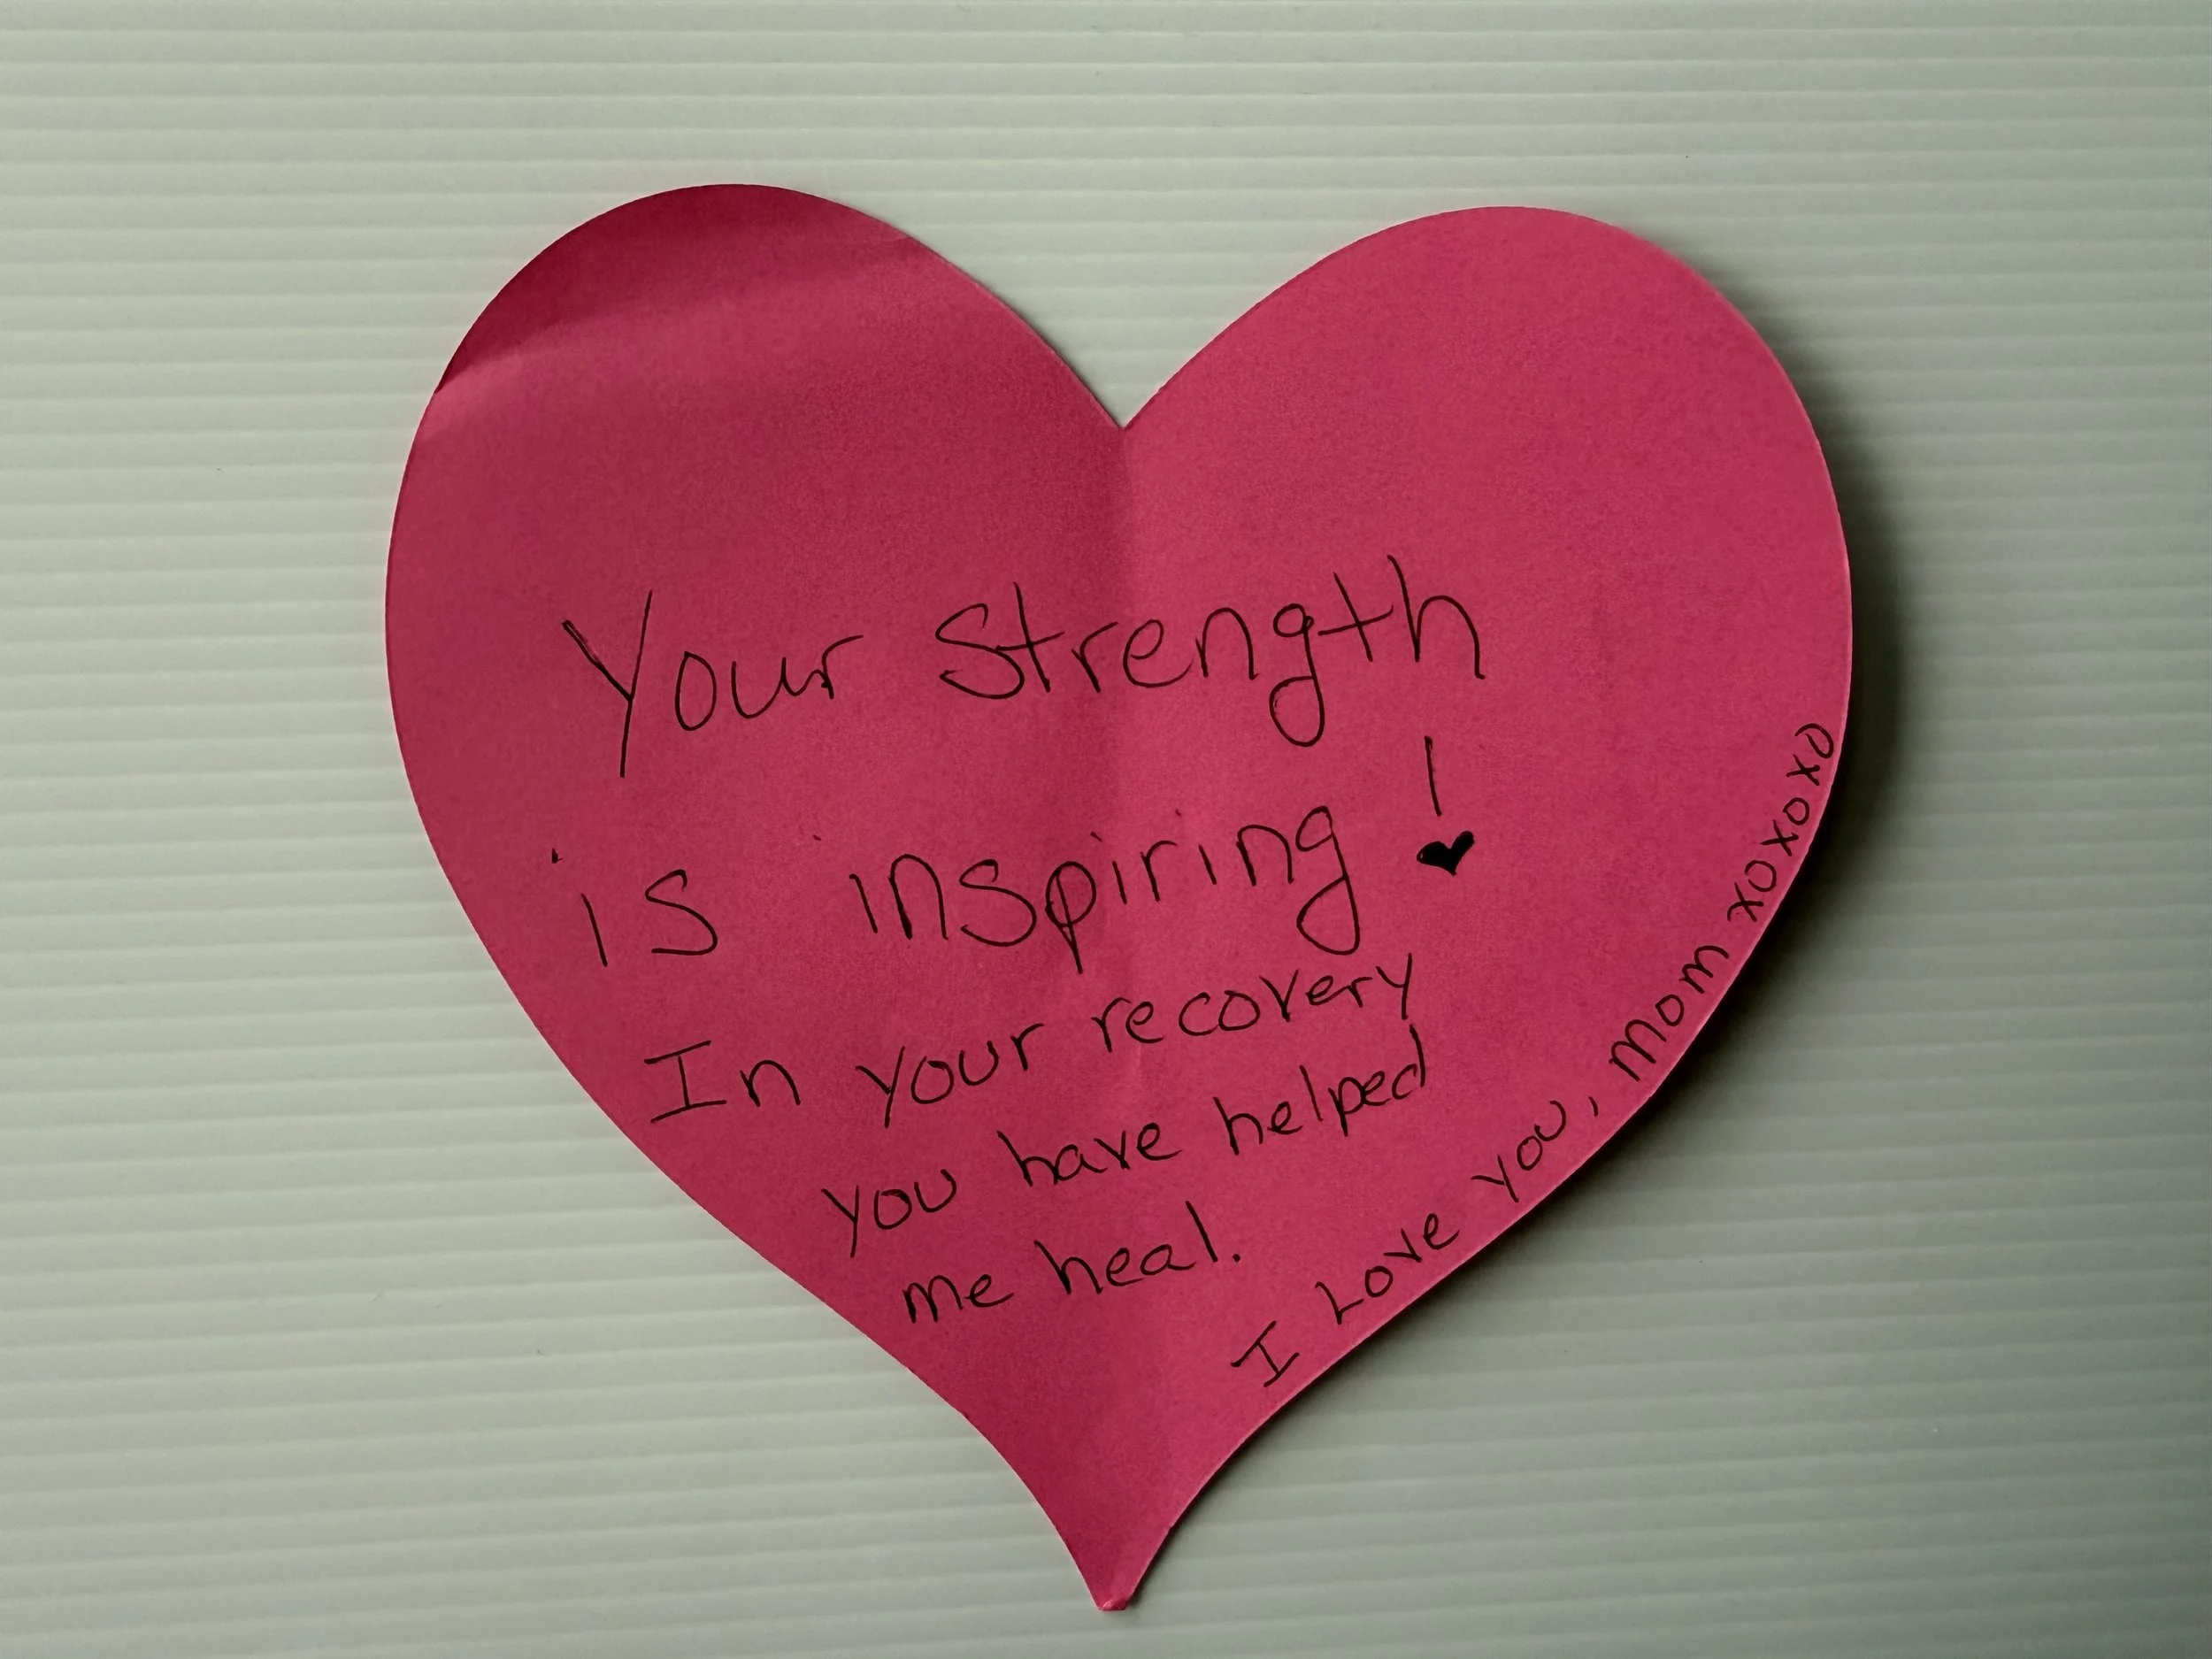 Your Strength
is inspiring!
In your recovery
you have helped
me heal.
I Love you, Mom xoxoxo